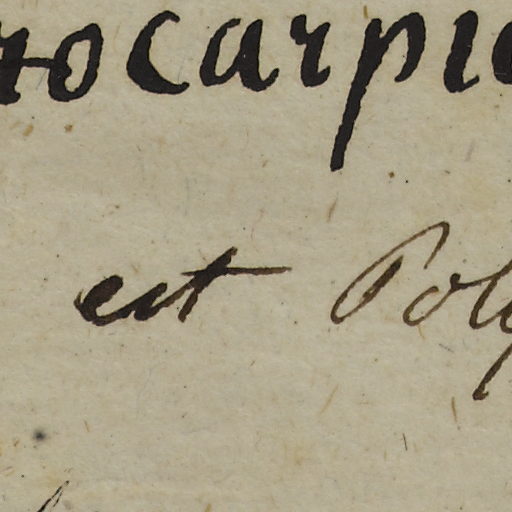 rocarpi
est Poly